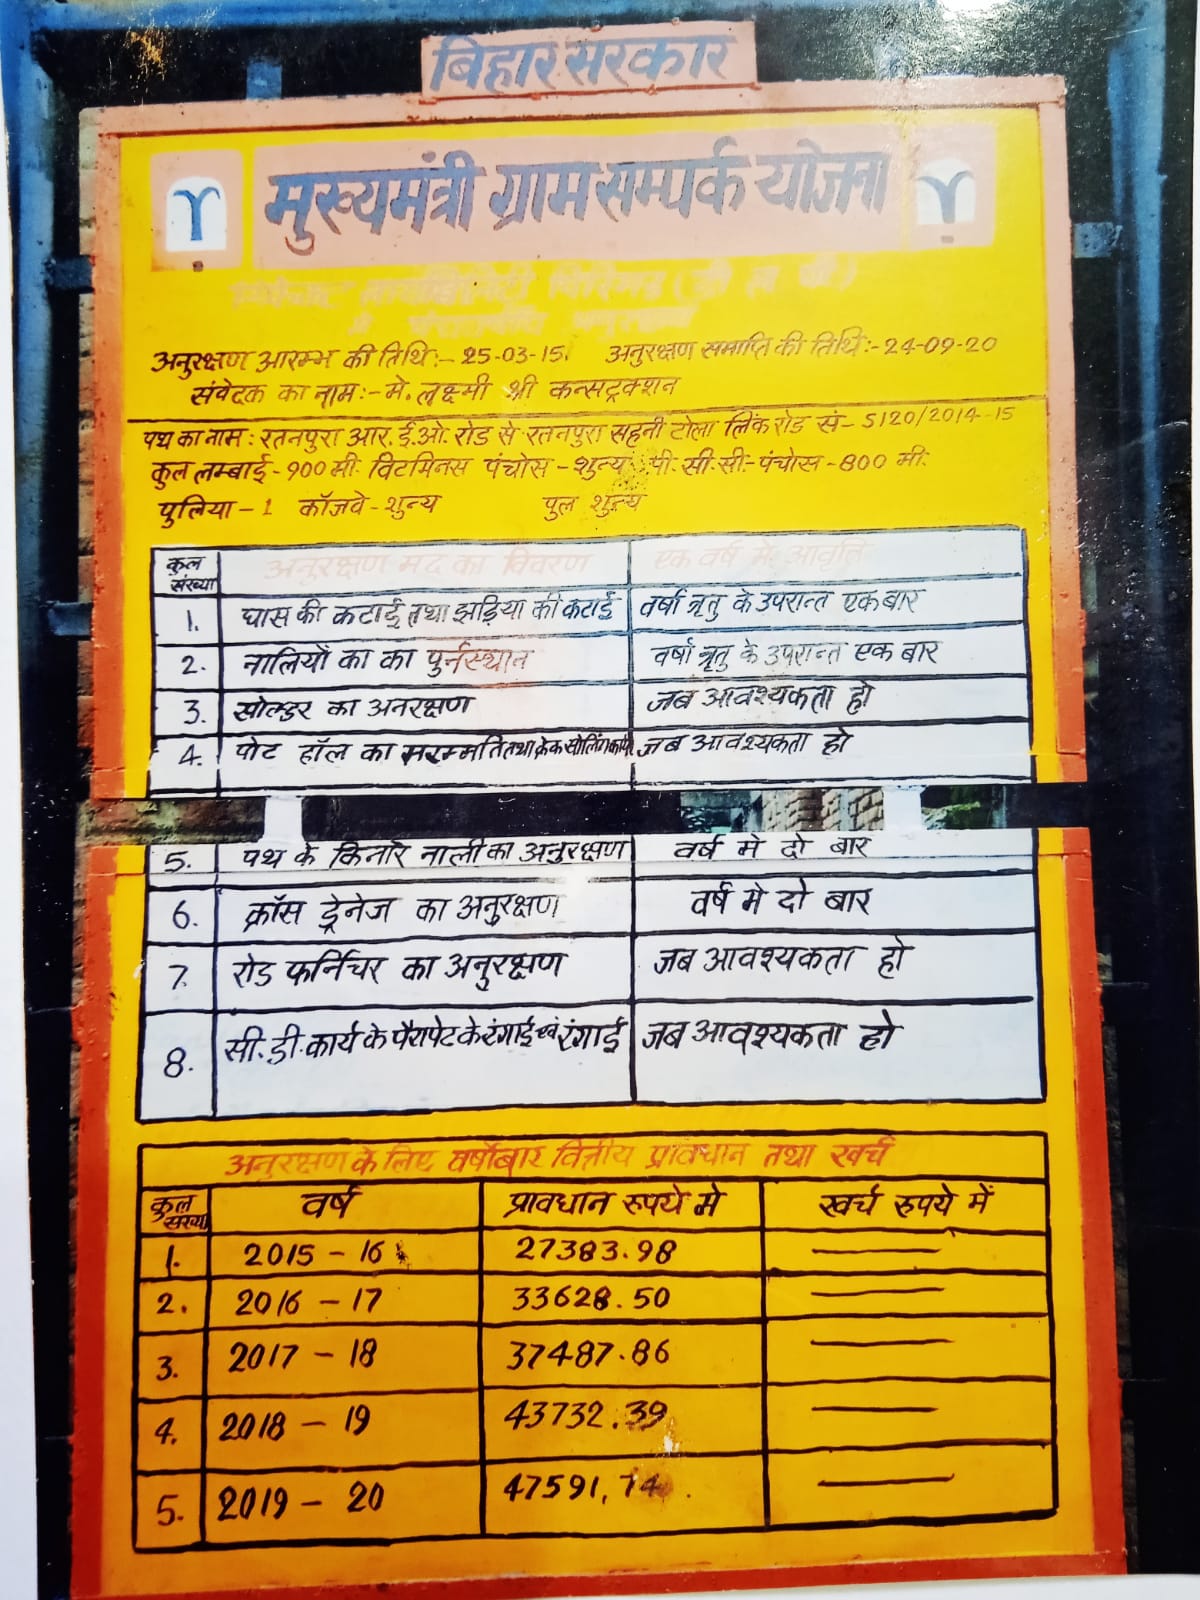 बिहार सरकार
मुख्यमंत्री ग्राम सम्पर्क योजना
अनुरक्षण आरम्भ की तिथि:- 25-03-15 अनुरक्षण समाप्ति की तिथि:- 24-09-20
संवेदक का नाम:- मे. लक्ष्मी श्री कन्सट्रक्शन
पथ का नाम: रतनपुरा आर.ई.ओ. रोड से रतनपुरा सहनी टोला लिंक रोड सं- S120/2014-15
कुल लम्बाई - 900 मी. विटमिनस पंचोस - शुन्य पी.सी.सी-पंचोस - 800 मी.
पुलिया - 1 कॉजवे - शुन्य पुल शुन्य
कुल संख्या अनुरक्षण मद का विवरण एक वर्ष मे आवृति
1. घास की कटाई तथा झाड़िया की कटाई वर्षा ॠतु के उपरान्त एक बार
2. नालियो का का पुर्नस्थान वर्षा ॠतु के उपरान्त एक बार
3. सोल्डर का अनरक्षण जब आवश्यकता हो
4. पोट हॉल का मरम्मति तथा क्रेक सीलिंग कार्य जब आवश्यकता हो
5. पथ के किनारे नाली का अनुरक्षण वर्ष मे दो बार
6. क्रॉस ड्रेनेज का अनुरक्षण वर्ष मे दो बार
7. रोड फर्निचर का अनुरक्षण जब आवश्यकता हो
8. सी.डी. कार्य के पैरापेट के रंगाई एवं रंगाई जब आवश्यकता हो
अनुरक्षण के लिए वर्षोबार वित्तीय प्रावधान तथा खर्च
कुल संख्या वर्ष प्रावधान रूपये मे खर्च रुपये में
1. 2015 - 16 27383.98 ———
2. 2016 - 17 33628.50 ———
3. 2017 - 18 37487.86 ———
4. 2018 - 19 43732.39 ———
5. 2019 - 20 47591.74 ———